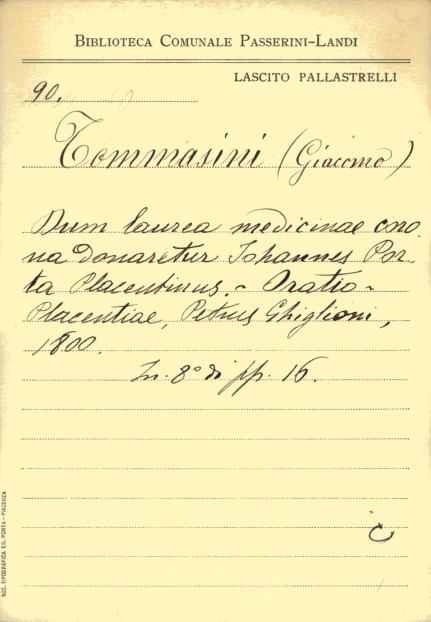 BIBLIOTECA COMUNALE PASSERINI-LANDI
LASCITO PALLASTRELLI
90.
Tommasini (Giacomo)
Dum laurea medicinae coro
na donaretur Iohannes Por-
ta Placentinus. - Oratio -
Placentiae, Petrus Ghiglioni,
1800.
In. 8° di pp. 16.
C
SOC. TIPOGRAFICA ED. PORTA - PIACENZA